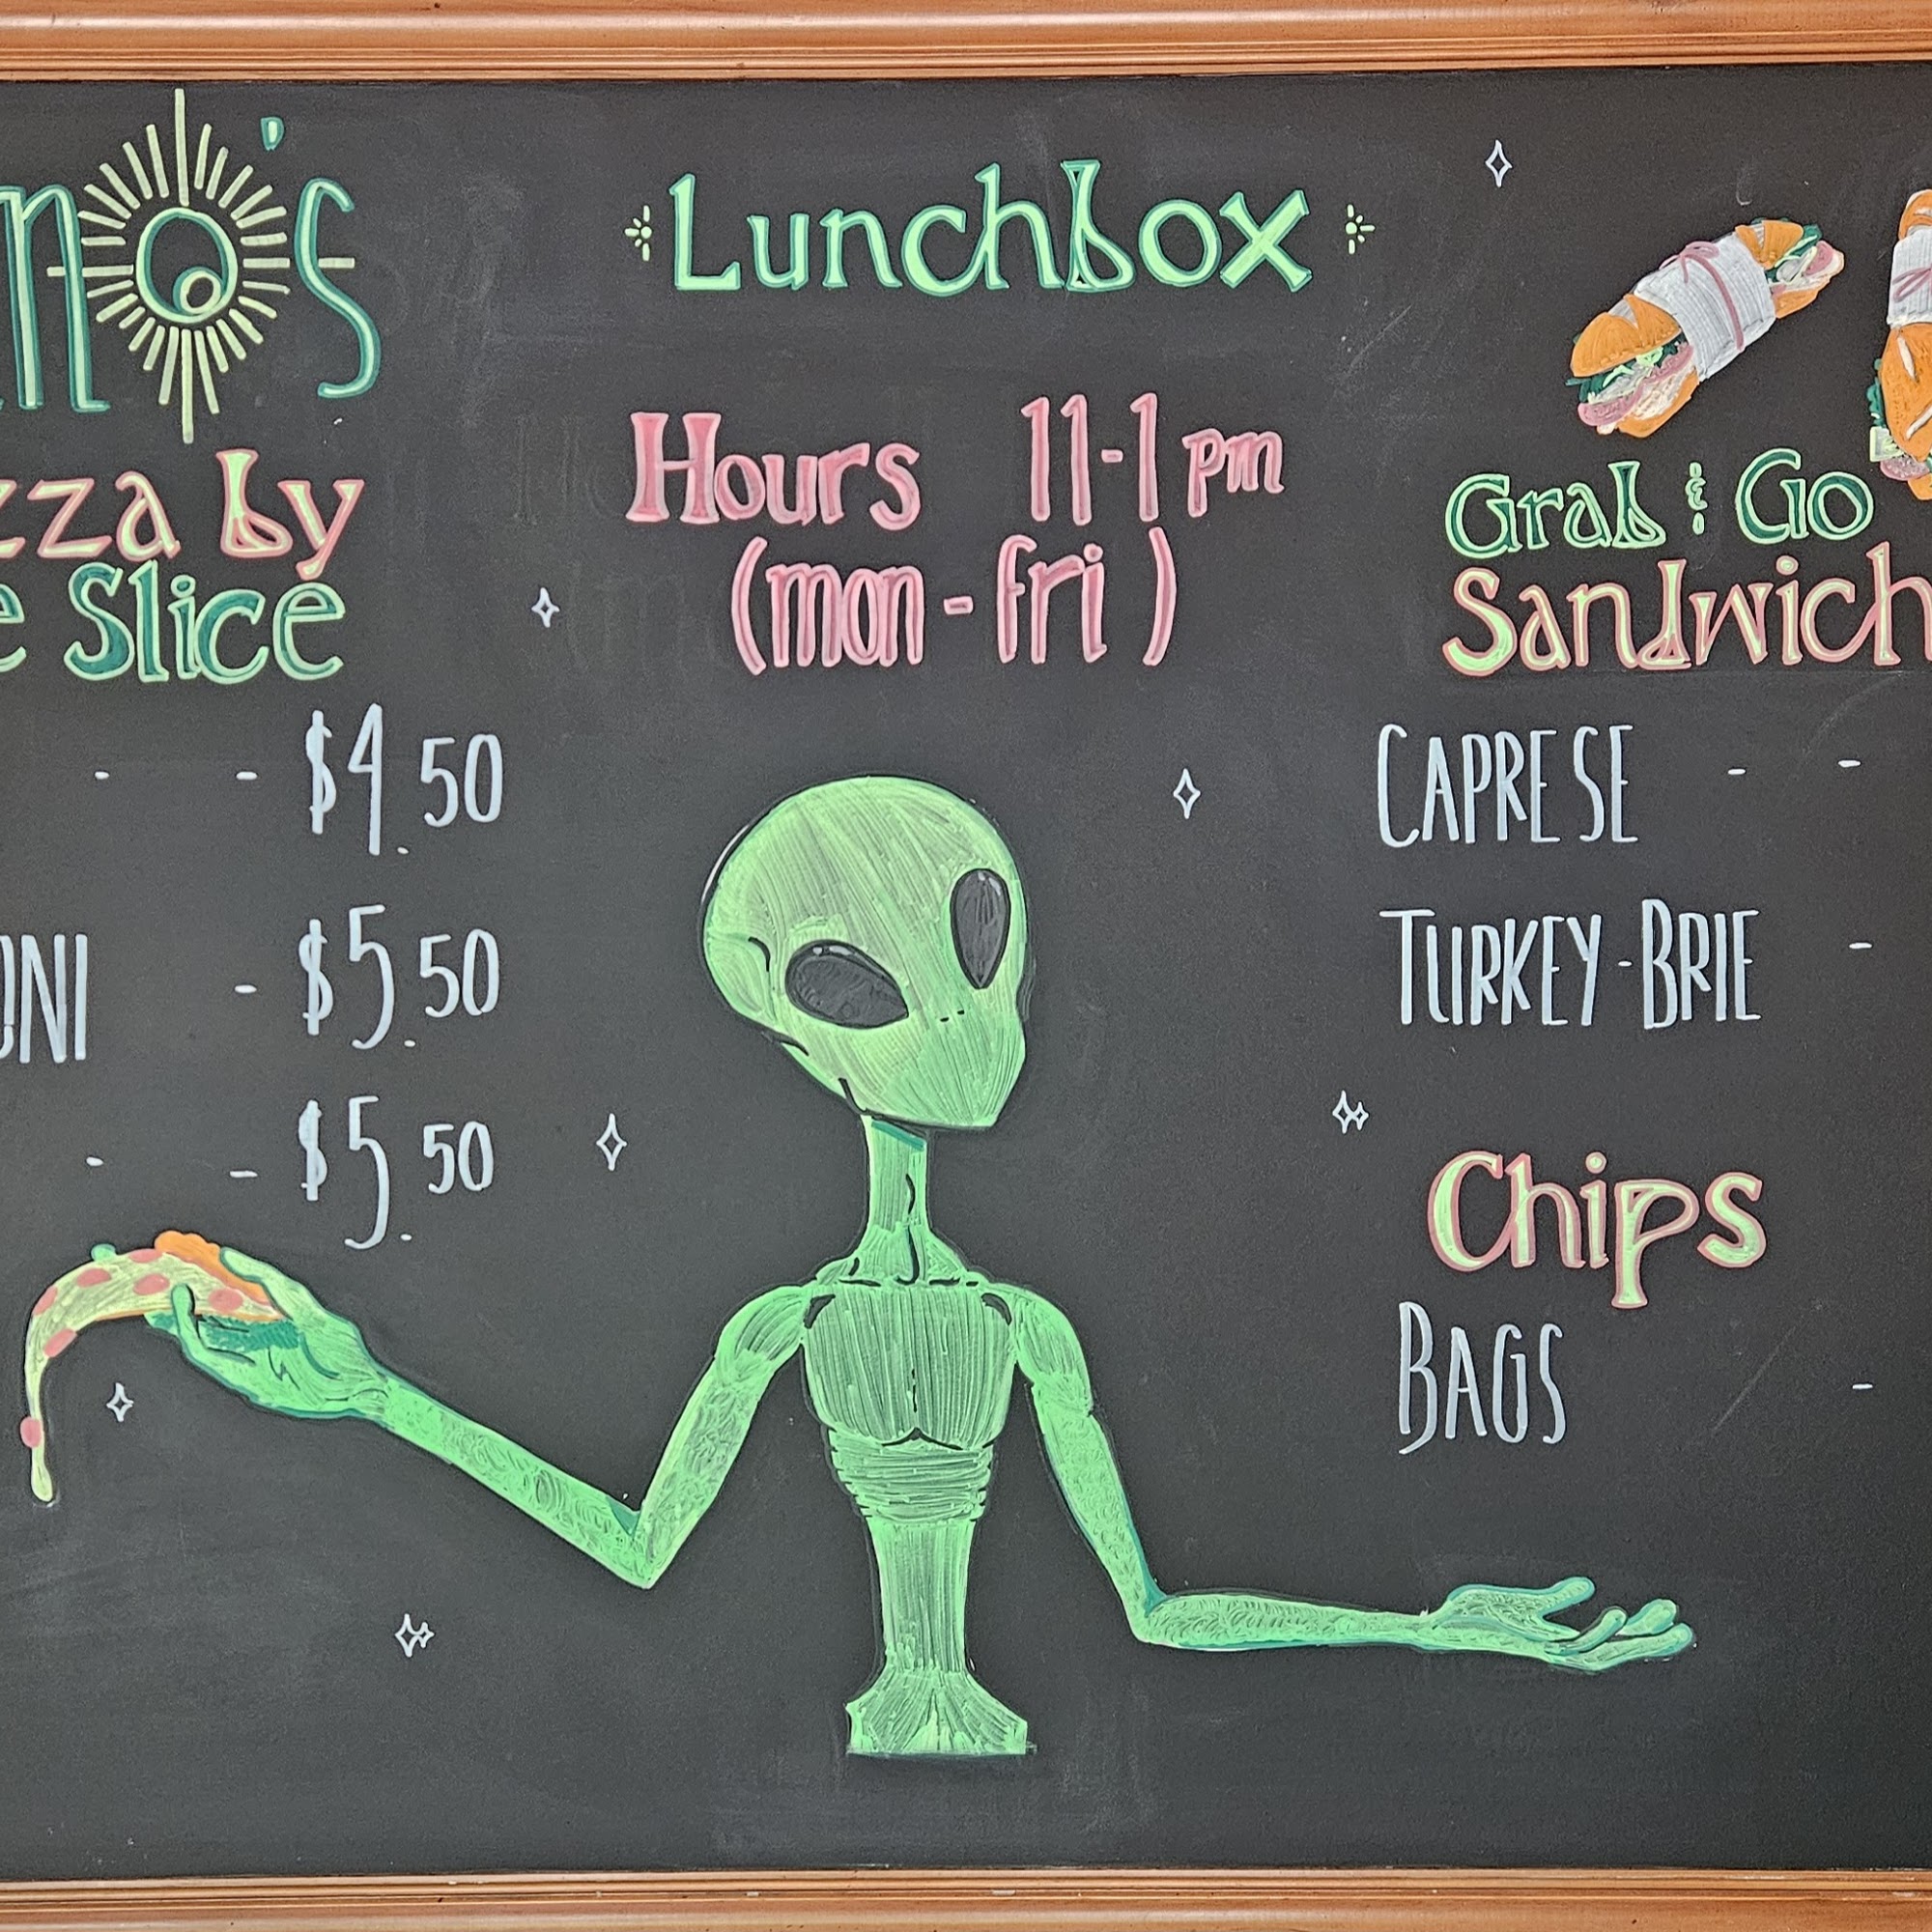 mo's
zza by
e Slice
- - $4.50
ONI - $5.50
- - $5.50
Lunchbox
Hours 11-1 pm
(mon - fri)
Grab & Go
Sandwich
CAPRESE - -
TURKEY-BRIE -
Chips
BAGS -